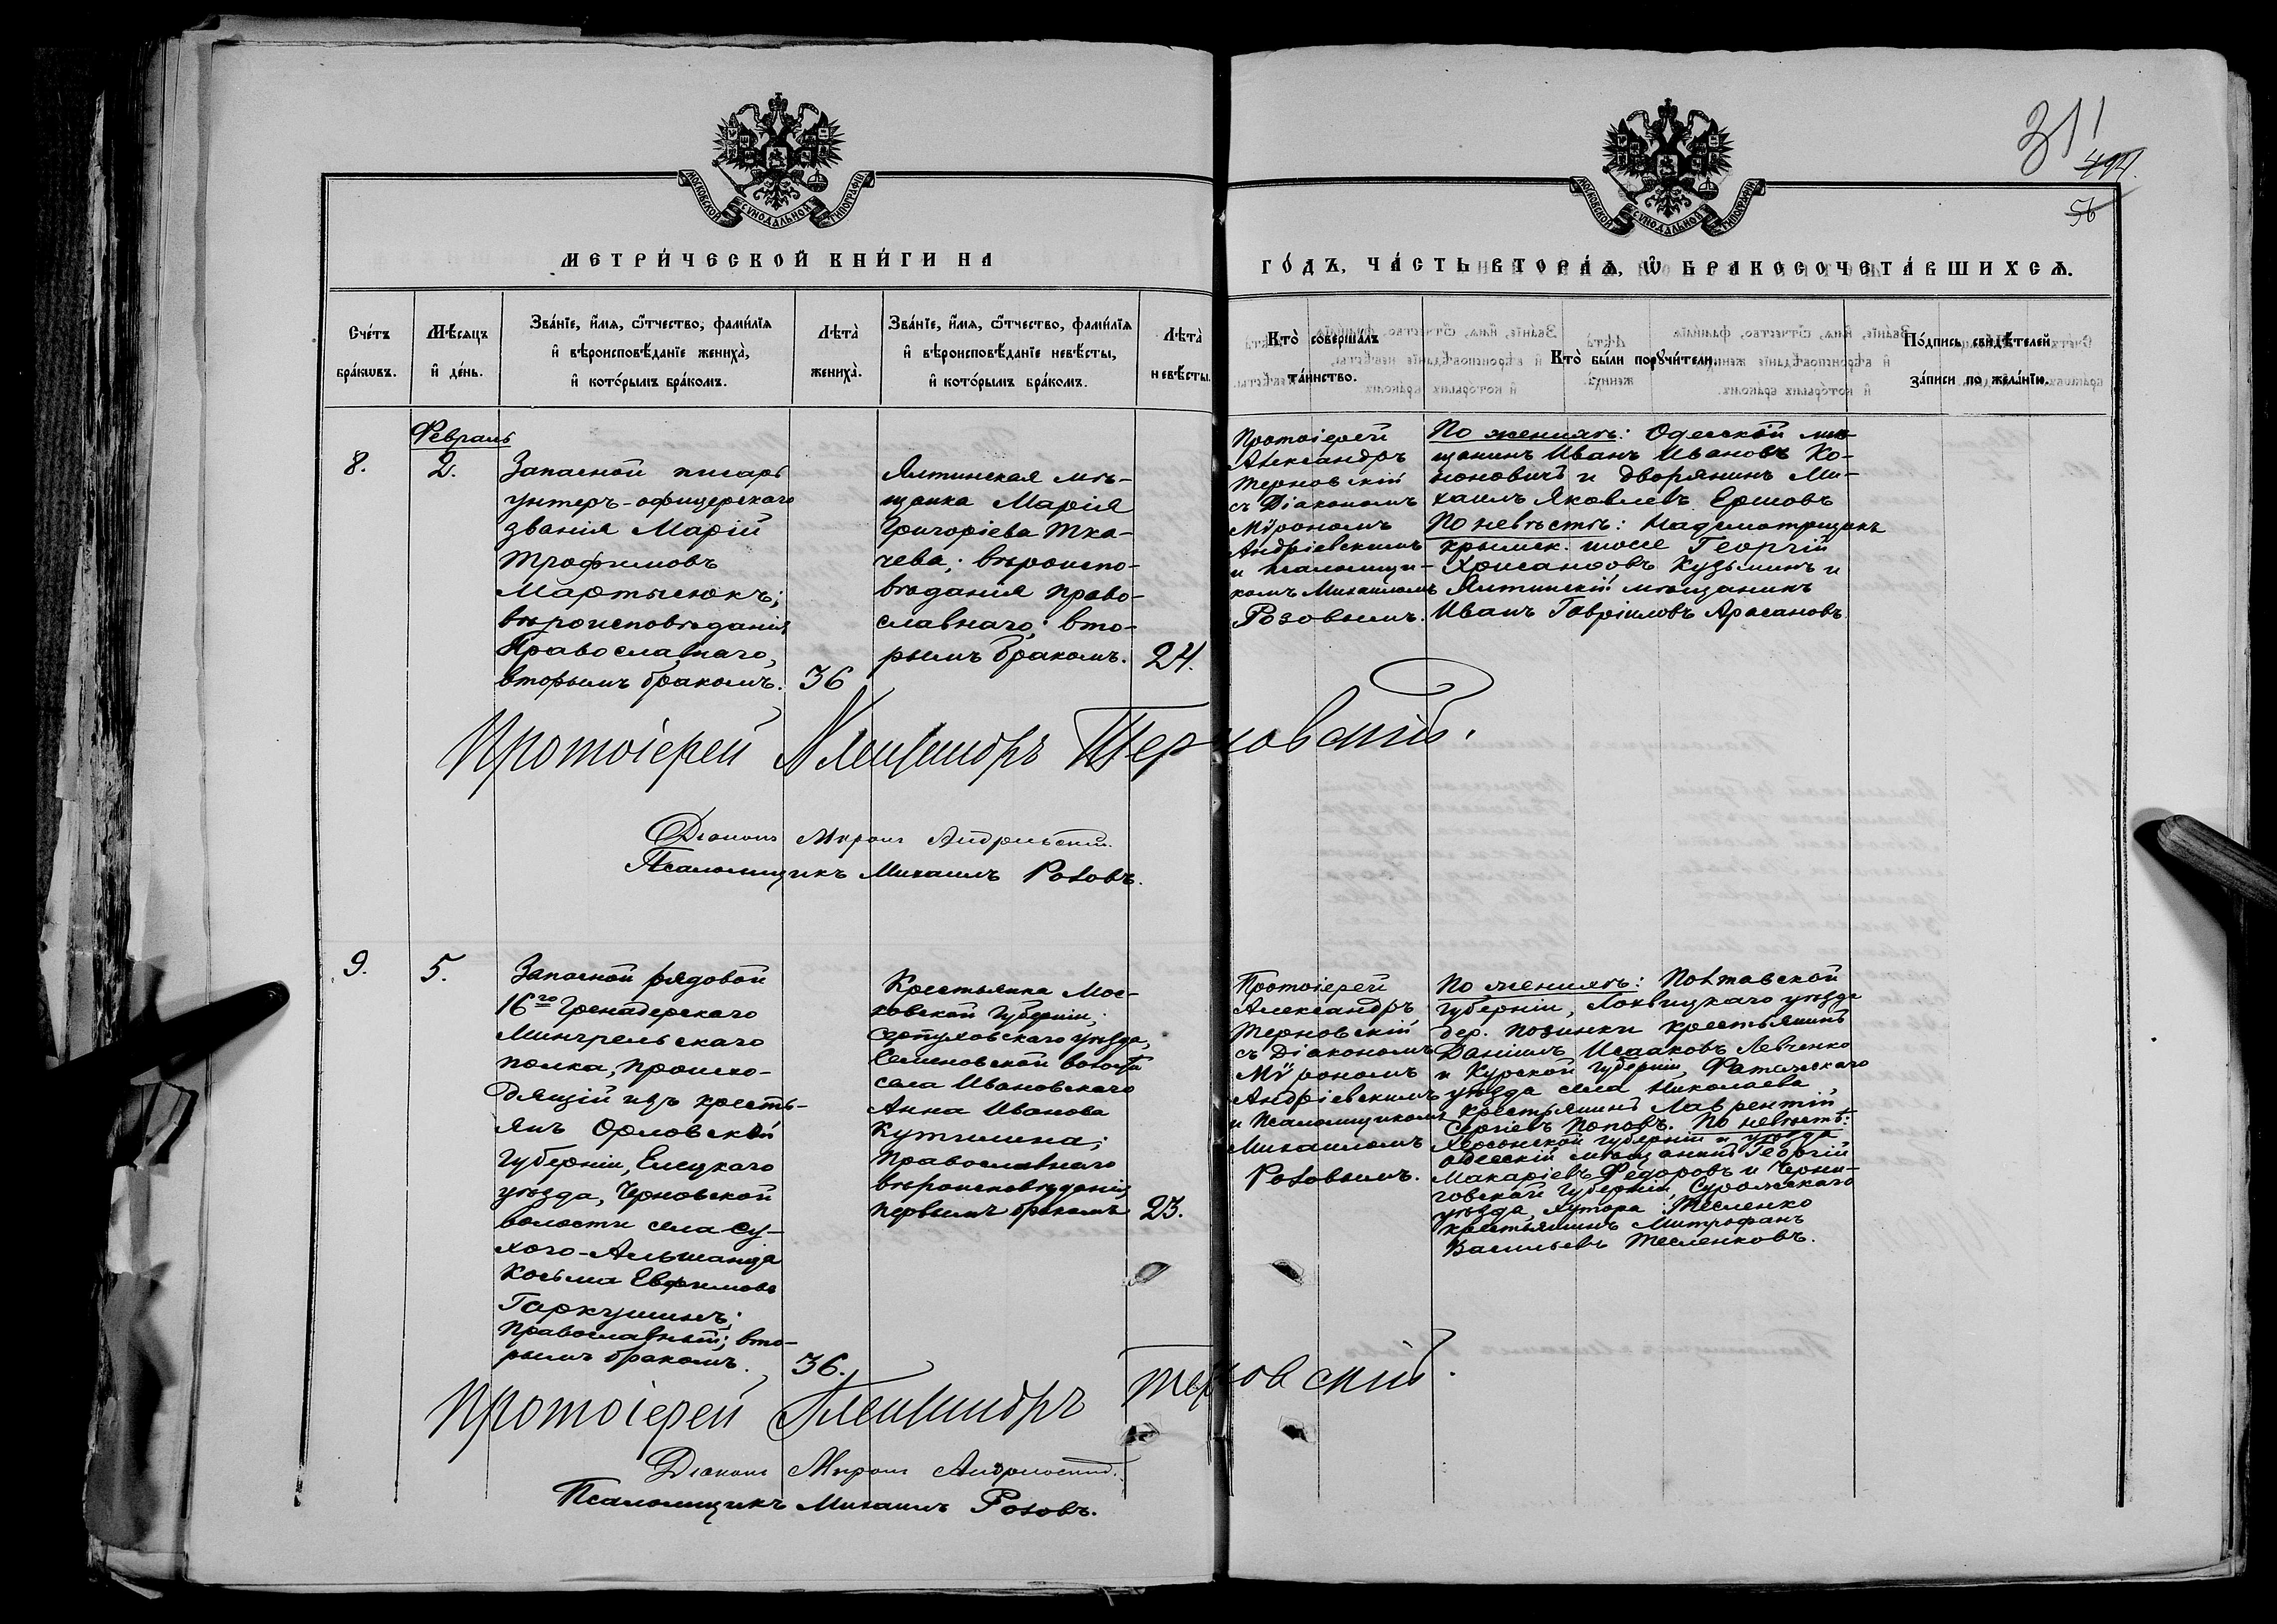 311
494.
56
МОСКОВСКОЙ СѴНОДАЛЬНОЙ ТИПОГРАФІИ
МОСКОВСКОЙ СѴНОДАЛЬНОЙ ТИПОГРАФІИ
МЕТРИ́ЧЕСКОЙ КНИ́ГИ НА
ГО́ДЪ, ЧА́СТЬ ВТОРА́Ѧ, Ѿ БРАКОСОЧЕТА́ВШИХСѦ.
Сче́тъ
бра́кѡвъ.
Мѣ́сяцъ
и҆ де́нь.
Зва́нїе, и҆́мѧ, ѻ҆́тчество, фами́лїѧ
и҆ вѣроисповѣ́данїе жениха̀,
и҆ кото́рымъ бра́комъ.
Лѣ́та̀
жениха̀.
Зва́нїе, и҆́мѧ, ѻ҆́тчество, фами́лїѧ
и҆ вѣроисповѣ́данїе невѣ́сты,
и҆ кото́рымъ бра́комъ.
Лѣ́та̀
невѣ́сты.
Кто̀ соверша́лъ
та́инство.
Кто̀ бы́ли порꙋчи́тели.
По́дпись свидѣ́телей
за́писи по жела́нїю.
Февраль
8.
2.
Запасной писарь
унтеръ-офицерскаго
званія Марій
Трофимовъ
Мартысюкъ;
вѣроисповѣданія
Православнаго,
вторымъ бракомъ.
36
Ялтинская мѣ-
щанка Марія
Григоріева Тка-
чева; вѣроиспо-
вѣданія право-
славнаго; вто-
рымъ бракомъ.
24.
Протоіерей
Александръ
Терновскій
съ Діакономъ
Мѵрономъ
Андріевскимъ
и псаломщи-
комъ Михаиломъ
Розовымъ.
По женихѣ: Одесскій мѣ-
щанинъ Иванъ Ивановъ Ко-
ноновичъ и дворянинъ Ми-
хаилъ Яковлевъ Ершовъ
По невѣстѣ: Надсмотрщикъ
крымск. шоссе Георгій
Хрисанѳовъ Кузьминъ и
Ялтинскій мѣщанинъ
Иванъ Гавріиловъ Арасановъ
Протоіерей Александръ Терновскій.
Діаконъ Миронъ Андріевскій.
Псаломщикъ Михаилъ Розовъ.
9.
5.
Запасной рядовой
16го Гренадерскаго
Мингрельскаго
полка, происхо-
дящій изъ кресть-
янъ Орловской
Губерніи, Елецкаго
уѣзда, Черновской
волости села Су-
хого-Альшанца
Косьма Евфимовъ
Гаркушинъ;
Православный; вто-
рымъ бракомъ.
36.
Крестьянка Мос-
ковской Губерніи,
Серпуховскаго уѣзда,
Семеновской волости
села Ивановскаго
Анна Иванова
Кутилина;
Православнаго
вѣроисповѣданія
первымъ бракомъ
23.
Протоіерей
Александръ
Терновскій
съ Діакономъ
Мѵрономъ
Андріевскимъ
и Псаломщикомъ
Михаиломъ
Розовымъ.
По женихѣ: Полтавской
губерніи, Лохвицкаго уѣзда
дер. Позинки крестьянинъ
Даніилъ Исааковъ Левченко
и Курской Губерніи, Фатежскаго
уѣзда села Николаева,
крестьянинъ Лаврентій
Сергіевъ Поповъ. По невѣстѣ:
Херсонской губерніи и уѣзда
одесскій мѣщанинъ Георгій
Макаріевъ Федоровъ и Черни-
говской Губерніи, Суражскаго
уѣзда, хутора Тесленко
крестьянинъ Митрофанъ
Васильевъ Тесленковъ.
Протоіерей Александръ Терновскій.
Діаконъ Миронъ Андріевскій.
Псаломщикъ Михаилъ Розовъ.